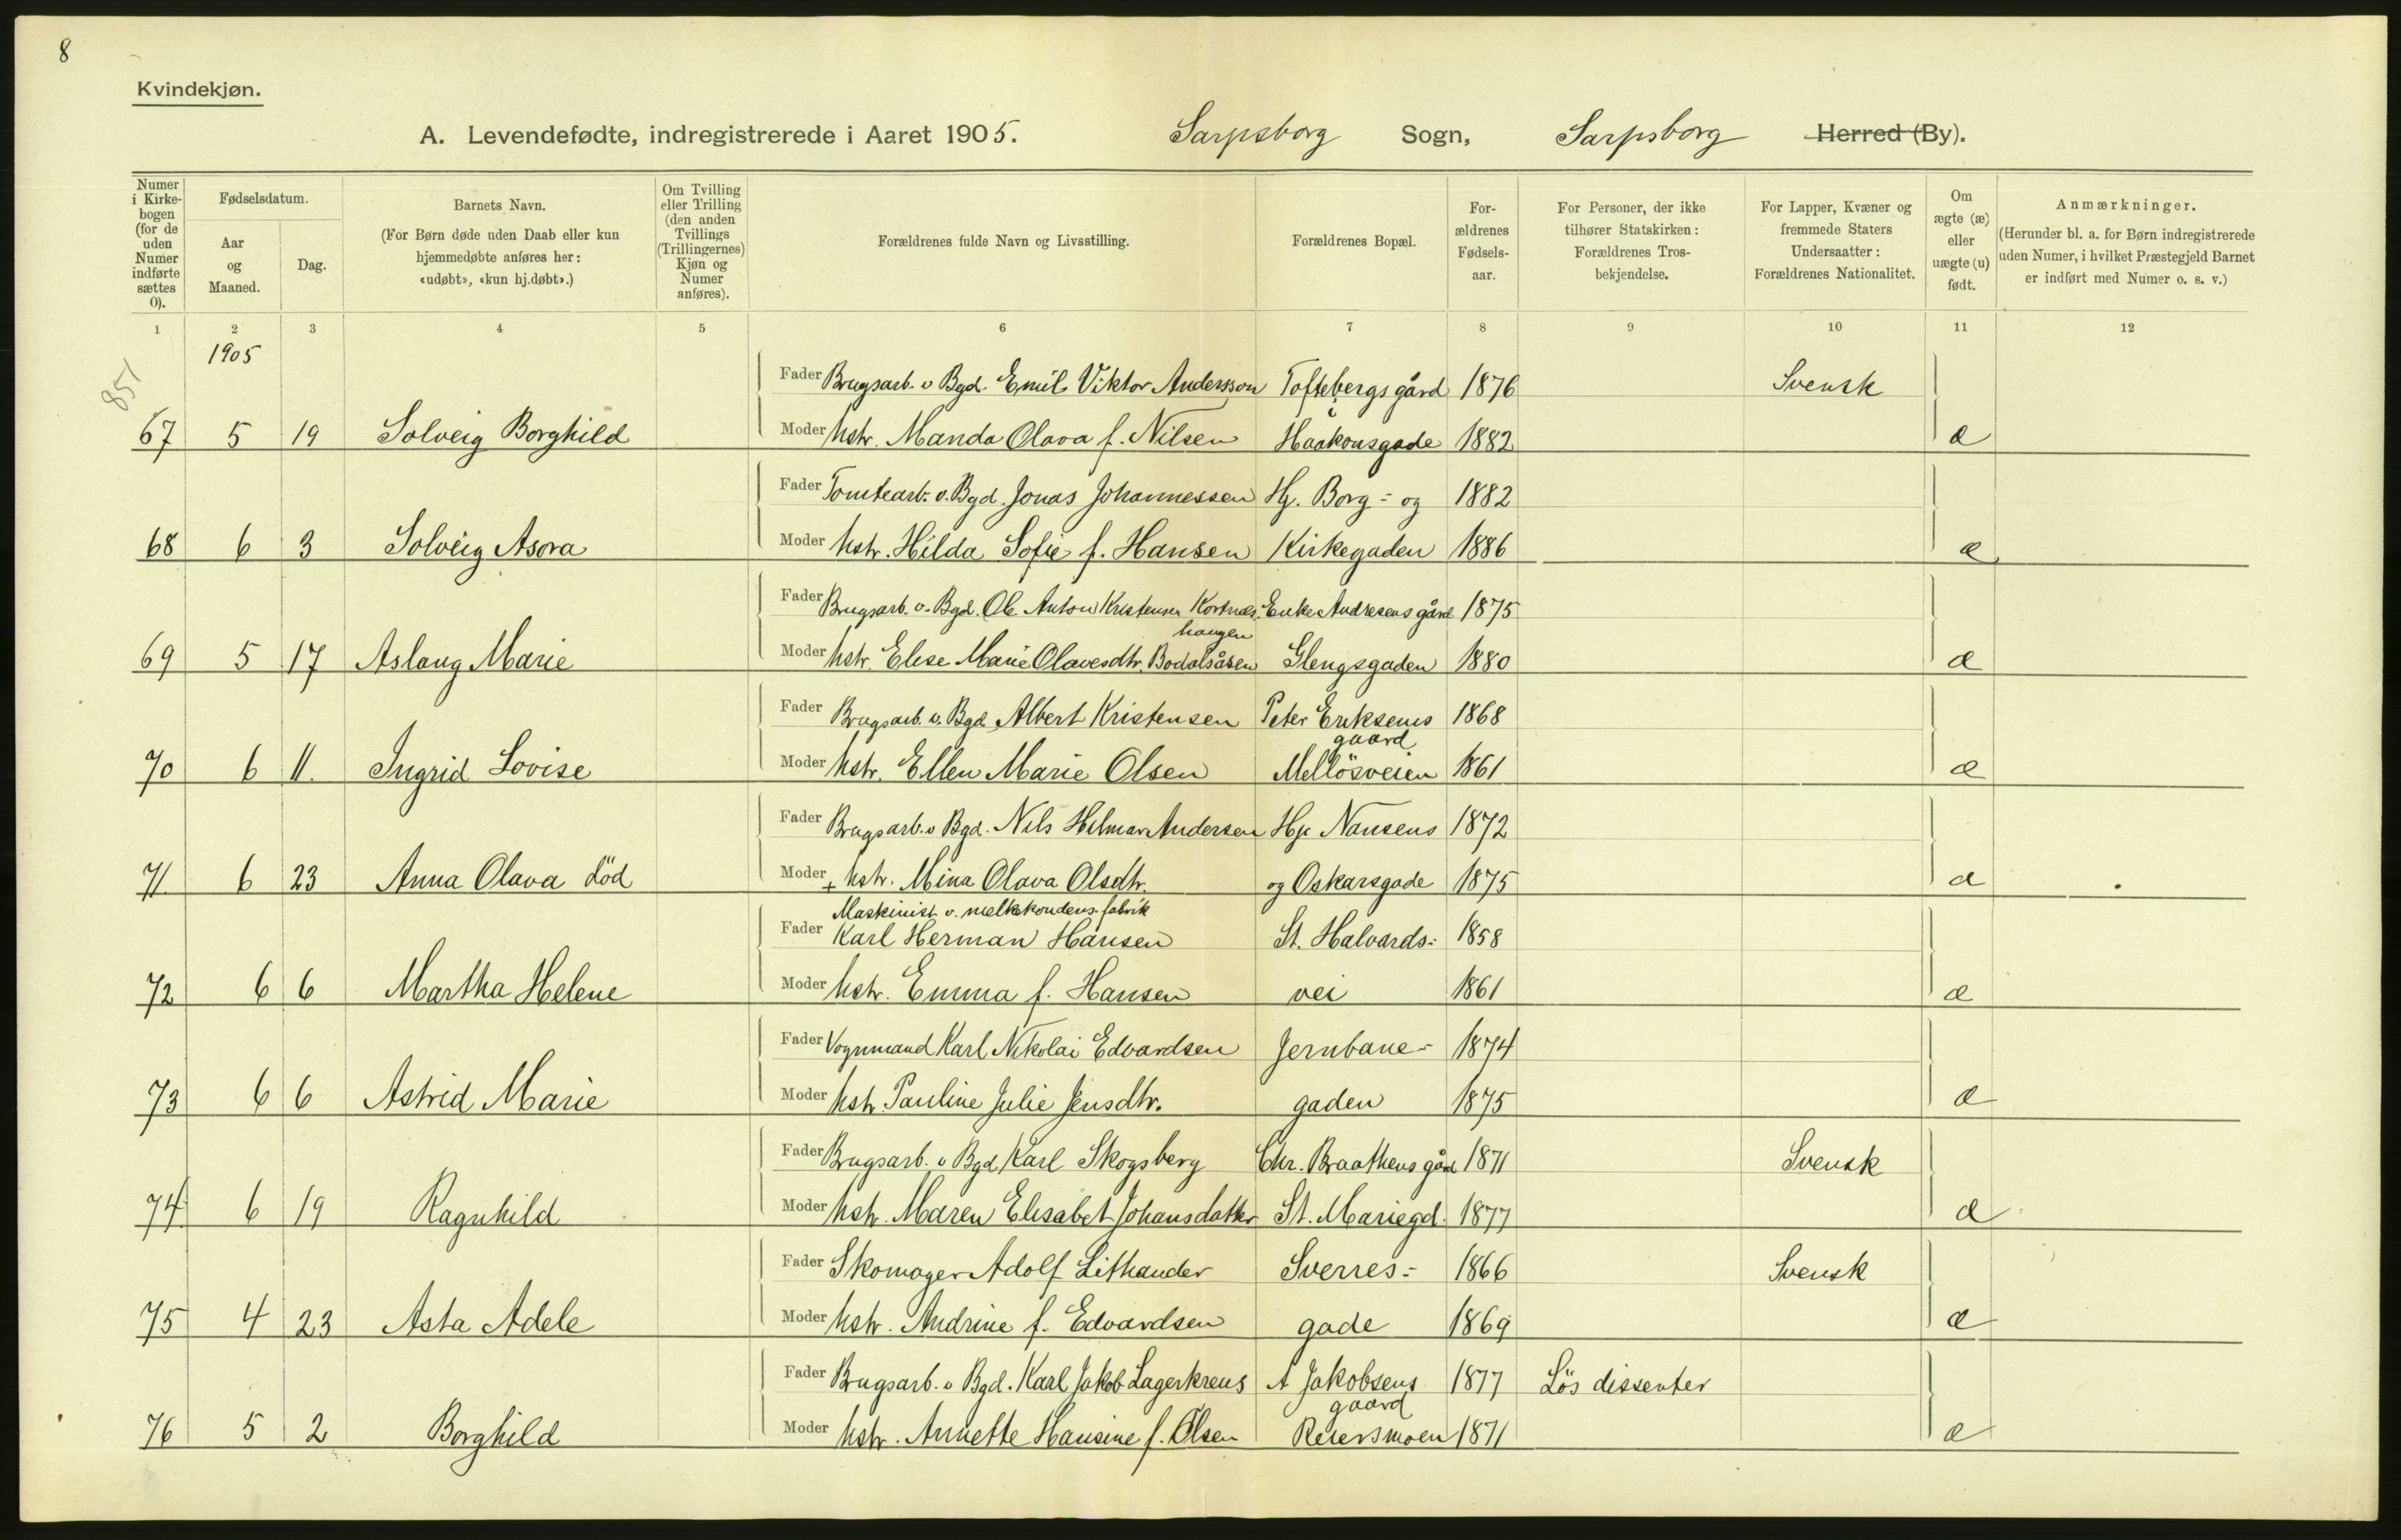 8
Kvindekjøn.
A. Levendefødte, indregistrerede i Aaret 1905. Sarpsborg Sogn, Sarpsborg Herred (By).
Numer i Kirkebogen (for de uden Numer indførte sættes 0).
Fødselsdatum.
Aar og Maaned.
Dag.
Barnets Navn.
(For Børn døde uden Daab eller kun hjemmedøbte anføres her: «udøbt», «kun hj.døbt».)
Om Tvilling eller Trilling (den anden Tvillings (Trillingernes) Kjøn og Numer anføres).
Forældrenes fulde Navn og Livsstilling.
Forældrenes Bopæl.
For-ældrenes Fødsels-aar.
For Personer, der ikke tilhører Statskirken: Forældrenes Tros-bekjendelse.
For Lapper, Kvæner og fremmede Staters Undersaatter: Forældrenes Nationalitet.
Om ægte (æ) eller uægte (u) født.
Anmærkninger.
(Herunder bl. a. for Børn indregistrerede uden Numer, i hvilket Præstegjeld Barnet er indført med Numer o. s. v.)
1 2 3 4 5 6 7 8 9 10 11 12
1905
851
Fader Brugsarb. v Bgd. Emil Viktor Andersson Toftebergsgård 1876 Svensk
i
67 5 19 Solveig Borghild Moder hstr. Manda Olava f. Nilsen Haakonsgade 1882 æ
Fader Tomtearb. v. Bgd. Jonas Johannessen Hj. Borg- og 1882
68 6 3 Solveig Asora Moder hstr. Hilda Sofie f. Hansen Kirkegaden 1886 æ
Fader Brugsarb. v. Bgd. Ole Anton Kristensen Kortnæs- Enke Andresens gård 1875
haugen
69 5 17 Aslaug Marie Moder hstr. Elise Marie Olavesdtr. Bodalsåsen Glengsgaden 1880 æ
Fader Brugsarb. v. Bgd. Albert Kristensen Peter Eriksens 1868
gaard
70 6 11. Ingrid Lovise Moder hstr. Ellen Marie Olsen Mellösveien 1861 æ
Fader Brugsarb. v Bgd. Nils Helmar Andersen Hj. Nansens 1872
71 6 23 Anna Olava död Moder + hstr. Mina Olava Olsdtr. og Oskarsgade 1875 æ
Maskinist v. melkekondens. fabrik
Fader Karl Herman Hansen St. Halvards- 1858
72 6 6 Martha Helene Moder hstr. Emma f. Hansen vei 1861 æ
Fader Vognmand Karl Nikolai Edvardsen Jernbane- 1874
73 6 6 Astrid Marie Moder hstr. Pauline Julie Jensdtr. gaden 1875 æ
Fader Brugsarb. v Bgd Karl Skogsberg Chr. Braathens gård 1871 Svensk
74 6 19 Ragnhild Moder hstr. Maren Elisabet Johansdatter St. Mariegd. 1877 æ
Fader Skomager Adolf Lithander Sverres- 1866 Svensk
75 4 23 Asta Adele Moder hstr. Andrine f. Edvardsen gade 1869 æ
Fader Brugsarb. v Bgd. Karl Jakob Lagerkrens A Jakobsens 1877 Lös dissenter
gaard
76 5 2 Borghild Moder hstr. Annette Hansine f. Olsen Reiersmoen 1871 æ